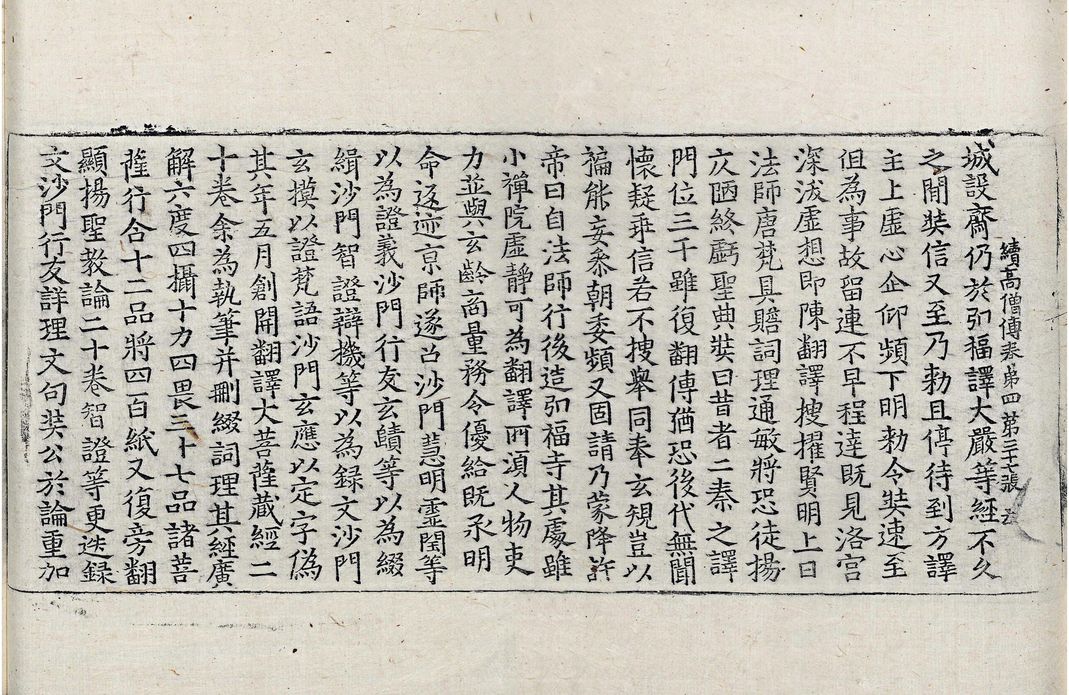 續高僧傳卷第四 第三十七張 𦍤
城設齋仍於弘福譯大嚴等經不久
之間奘信又至乃勑且停待到方譯
主上虛心企仰頻下明勑令奘速至
但爲事故留連不早程達既見洛宮
深沃虛想即陳翻譯搜擢賢明上曰
法師唐梵具贍詞理通敏將恐徒揚
仄陋終虧聖典奘曰昔者二秦之譯
門位三千雖復翻傳猶恐後代無聞
懷疑乖信若不搜舉同奉玄規豈以
褊能妄叅朝委頻又固請乃蒙降許
帝曰自法師行後造弘福寺其處雖
小禪院虛静可爲翻譯所湏人物吏
力並與玄齡商量務令優給既承明
命返迹京師遂召沙門慧明靈閏等
以爲證義沙門行友玄賾等以爲綴
緝沙門智證辯機等以爲録文沙門
玄摸以證梵語沙門玄應以定字僞
其年五月創開翻譯大菩薩藏經二
十卷余爲執筆并刪綴詞理其經廣
解六度四攝十力四畏三十七品諸菩
薩行合十二品將四百紙又復旁翻
顯揚聖教論二十卷智證等更迭録
文沙門行友詳理文句奘公於論重加